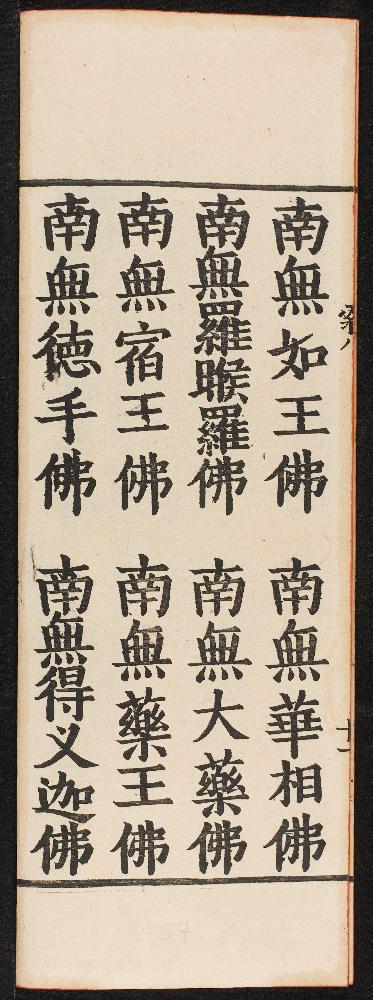 南無如王佛 南無華相佛
南無羅睺羅佛 南無大藥佛
南無宿王佛 南無藥王佛
南無德手佛 南無得义迦佛